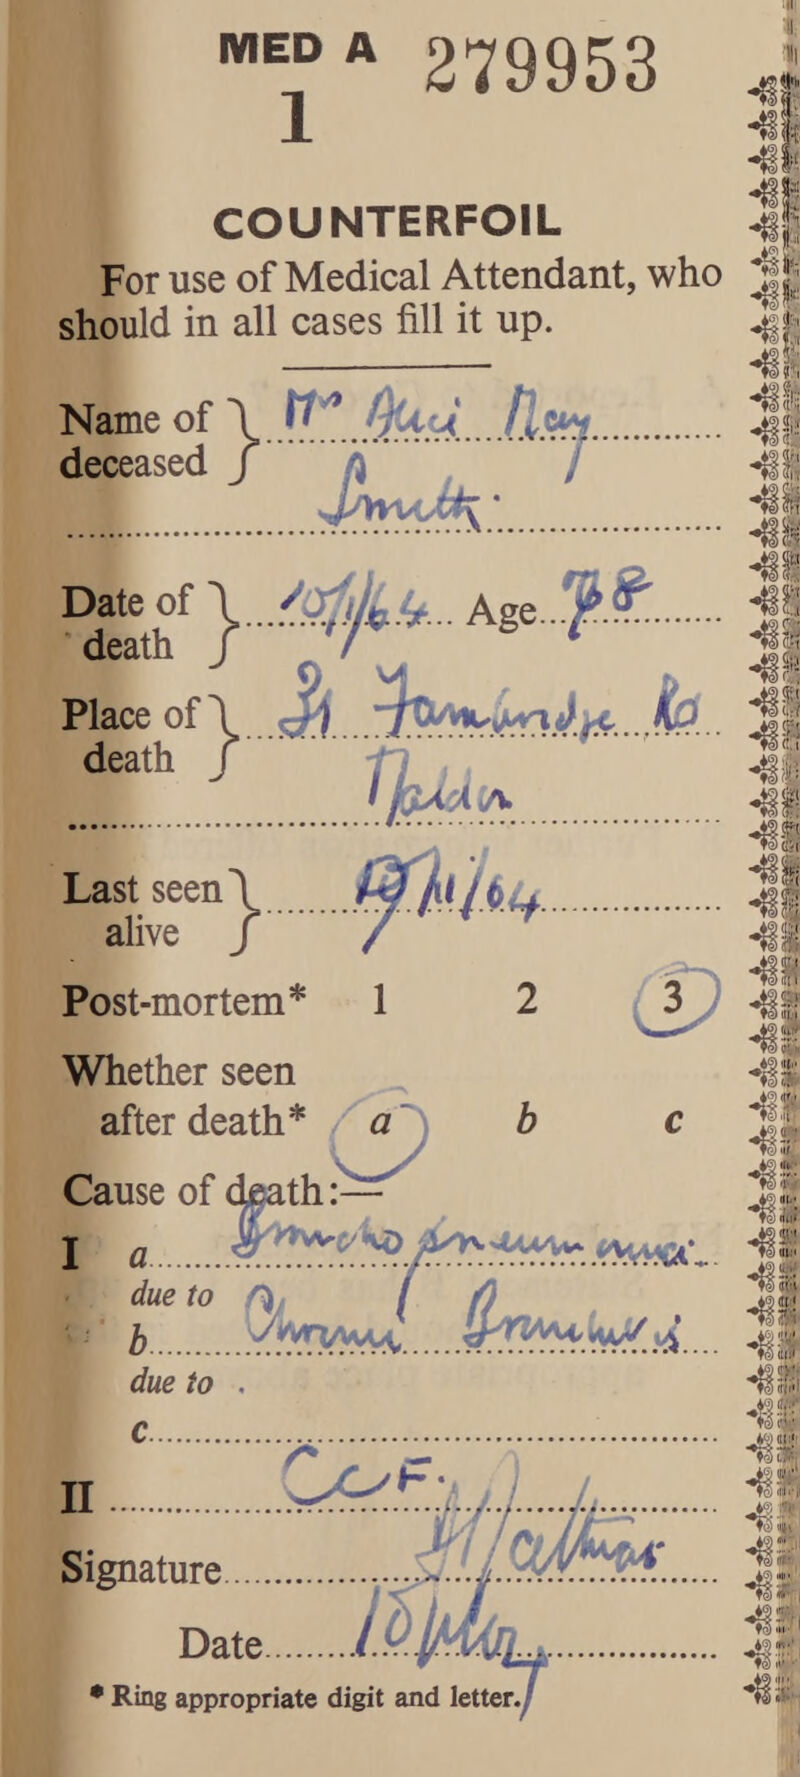 MED A 279953
1
COUNTERFOIL
For use of Medical Attendant, who
should in all cases fill it up.
Name of Mrs Alice May
deceased
Smith.
Date of 10/1/64 Age 78
death
Place of 31 Road
death
Malden
Last seen /64
alive
Post-mortem* 1 2 3
Whether seen
after death* a b c
Cause of death:—
I a Broncho pneumonia
due to
b Chronic Bronchitis
due to
c
II CCF.
Signature
Date 10
* Ring appropriate digit and letter.